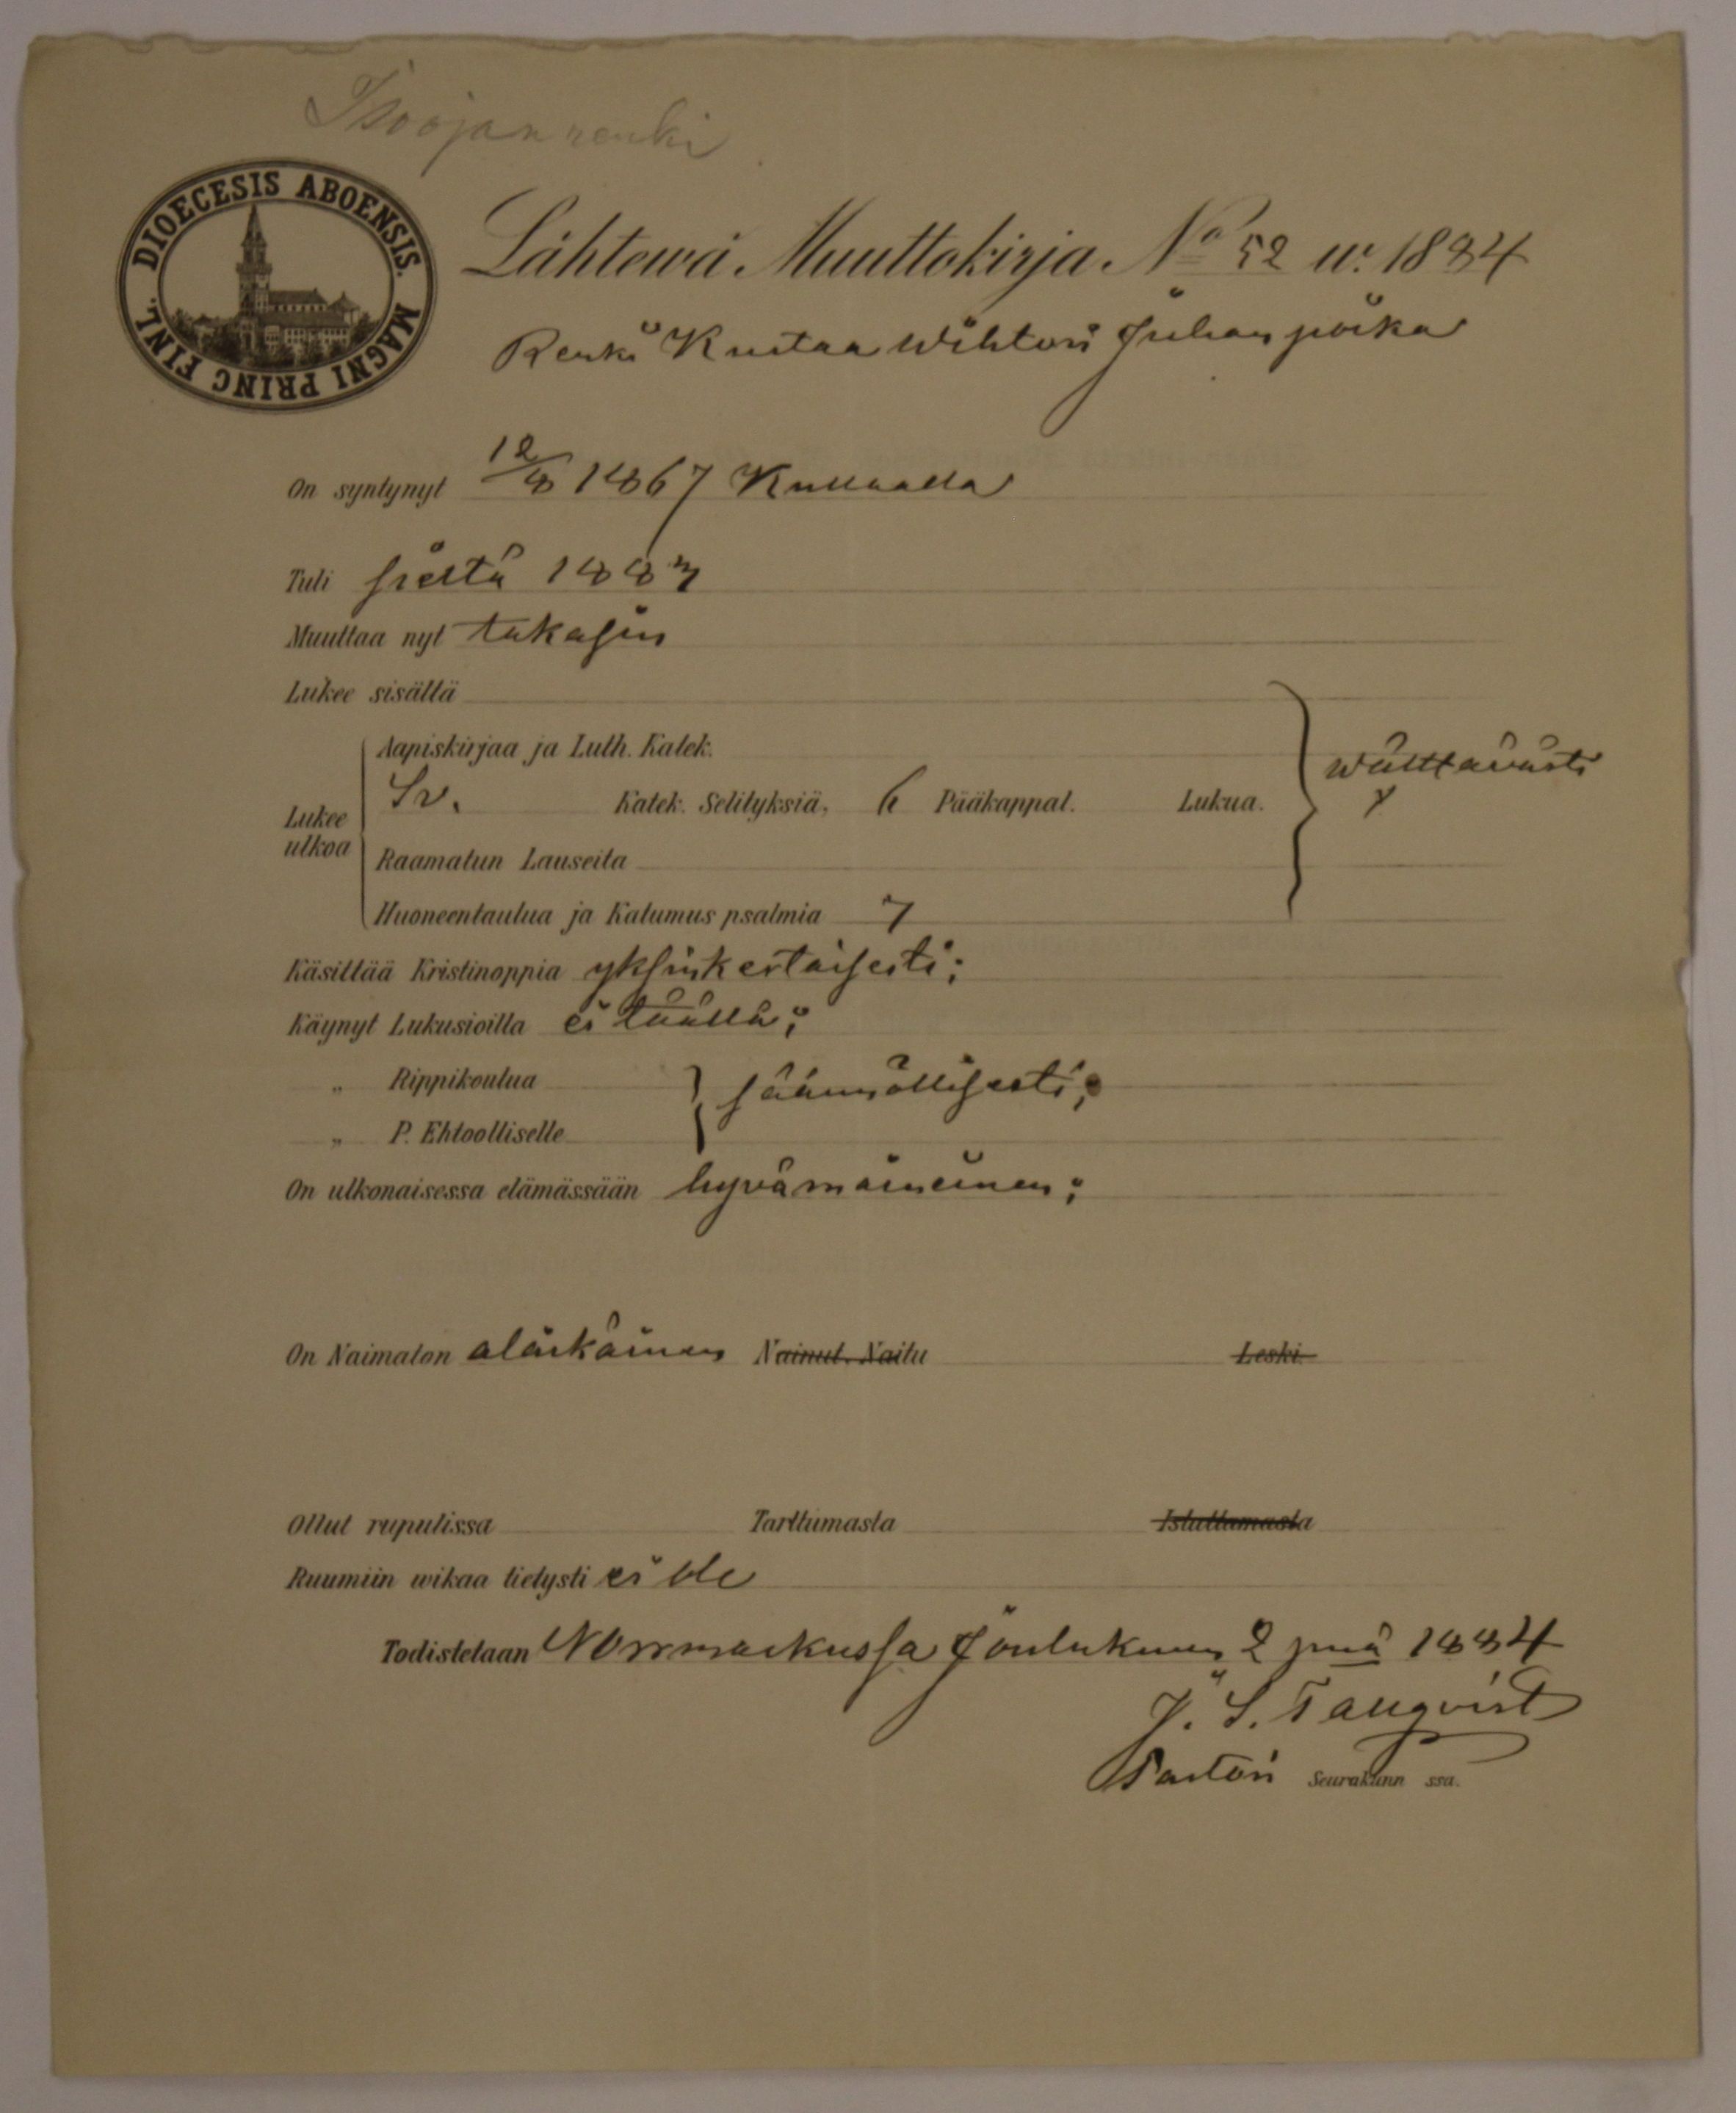 Isoojan renki
DIOECESIS ABOENSIS. MAGNI PRINC FINL.
Lähtewä Muuttokirja No 52 w. 1884
Renki Kustaa Wihtori Juhanpoika
On syntynyt 12/8 1867 Kullaalla
Tuli sieltä 1883
Muuttaa nyt takasin
Lukee sisältä
Aapiskirjaa ja Luth. Katek.
wälttäwästi
Lukee ulkoa
Sv. Katek. Selityksiä, 6 Pääkappal. Lukua.
Raamatun Lauseita
Huoneentaulua ja Katumus psalmia 7
Käsittää Kristinoppia yksinkertaisesti;
Käynyt Lukusioilla ei täällä;
„ Rippikoulua
säännöllisesti;
„ P. Ehtoolliselle
On ulkonaisessa elämässään hyvämaineinen;
On Naimaton alaikäinen Nainut. Naitu Leski.
Ollut rupulissa Tarttumasta Istuttamasta
Ruumiin wikaa tietysti ei ole
Todistetaan Norrmarkussa Joulukuun 2 pnä 1884
J. S. Tallqvist
Pastori Seurakunn ssa.